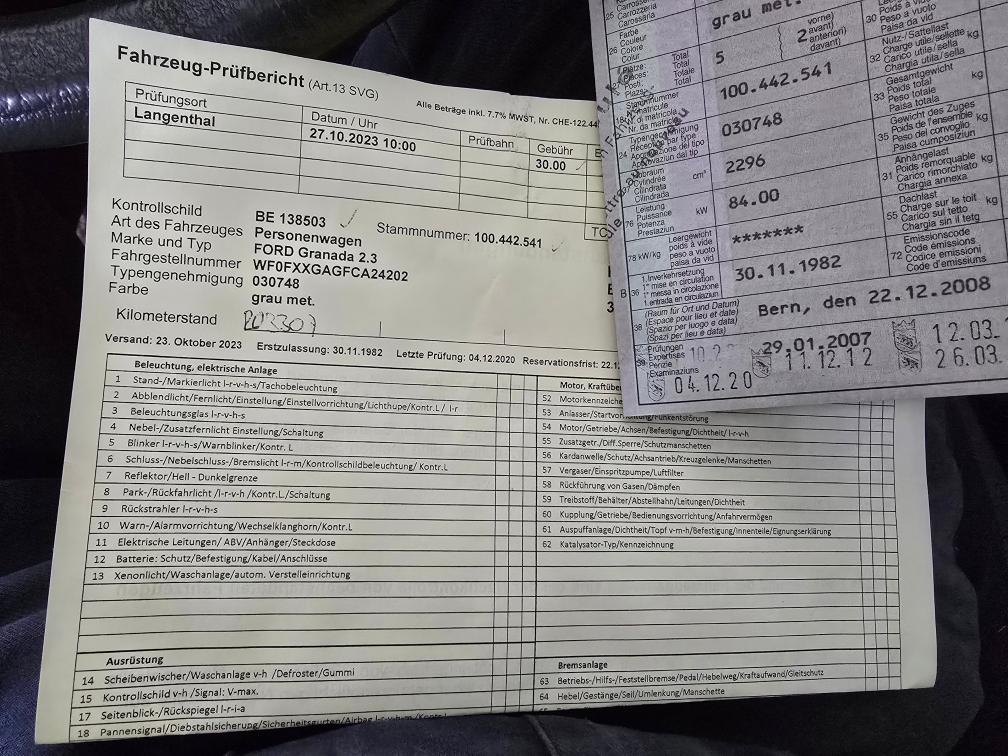 Fahrzeug-Prüfbericht (Art.13 SVG)
Alle Beträge inkl. 7.7% MWST, Nr. CHE-122.44
Prüfungsort Datum / Uhr Prüfbahn Gebühr
Langenthal 27.10.2023 10:00 30.00
Kontrollschild BE 138503 Stammnummer: 100.442.541
Art des Fahrzeuges Personenwagen
Marke und Typ FORD Granada 2.3
Fahrgestellnummer WF0FXXGAGFCA24202
Typengenehmigung 030748
Farbe grau met.
Kilometerstand
Versand: 23. Oktober 2023 Erstzulassung: 30.11.1982 Letzte Prüfung: 04.12.2020 Reservationsfrist: 22.1
Beleuchtung, elektrische Anlage
1 Stand-/Markierlicht l-r-v-h-s/Tachobeleuchtung
2 Abblendlicht/Fernlicht/Einstellung/Einstellvorrichtung/Lichthupe/Kontr.L / l-r
3 Beleuchtungsglas l-r-v-h-s
4 Nebel-/Zusatzfernlicht Einstellung/Schaltung
5 Blinker l-r-v-h-s/Warnblinker/Kontr. L
6 Schluss-/Nebelschluss-/Bremslicht l-r-m/Kontrollschildbeleuchtung/ Kontr.L
7 Reflektor/Hell - Dunkelgrenze
8 Park-/Rückfahrlicht /l-r-v-h /Kontr.L/Schaltung
9 Rückstrahler l-r-v-h-s
10 Warn-/Alarmvorrichtung/Wechselklanghorn/Kontr.L
11 Elektrische Leitungen/ ABV/Anhänger/Steckdose
12 Batterie: Schutz/Befestigung/Kabel/Anschlüsse
13 Xenonlicht/Waschanlage/autom. Verstelleinrichtung
Ausrüstung
14 Scheibenwischer/Waschanlage v-h /Defroster/Gummi
15 Kontrollschild v-h /Signal: V-max.
17 Seitenblick-/Rückspiegel l-r-i-a
18 Pannensignal/Diebstahlsicherung/Sicherheitsgurten/Airbag l-r-v-h-m /Kontr.L
Motor, Kraftübe
52 Motorkennzeiche
53 Anlasser/Startvorri /Funkentstörung
54 Motor/Getriebe/Achsen/Befestigung/Dichtheit/ l-r-v-h
55 Zusatzgetr./Diff.Sperre/Schutzmanschetten
56 Kardanwelle/Schutz/Achsantrieb/Kreuzgelenke/Manschetten
57 Vergaser/Einspritzpumpe/Luftfilter
58 Rückführung von Gasen/Dämpfen
59 Treibstoff/Behälter/Abstellhahn/Leitungen/Dichtheit
60 Kupplung/Getriebe/Bedienungsvorrichtung/Anfahrvermögen
61 Auspuffanlage/Dichtheit/Topf v-m-h/Befestigung/Innenteile/Eignungserklärung
62 Katalysator-Typ/Kennzeichnung
Bremsanlage
63 Betriebs-/Hilfs-/Feststellbremse/Pedal/Hebelweg/Kraftaufwand/Gleitschutz
64 Hebel/Gestänge/Seil/Umlenkung/Manschette
25 Carrozzeria
Carossaria
26 Farbe
Couleur
Colore
Colur
grau met.
Plätze: Total
Places: Total
Posti: Totale
Plazs: Total
5
2 vorne)
avant)
anteriori)
davant)
18 Stammnummer
N° matricule
N. di matricola
Nr. da matricla
100.442.541
24 Typengenehmigung
Réception par type
Approvazione del tipo
Approvaziun dal tip
030748
37 Hubraum
Cylindrée
Cilindrata
Cilindrada
cm³
2296
76 Leistung
Puissance
Potenza
Prestaziun
kW
84.00
78 kW/kg
Leergewicht
poids à vide
peso a vuoto
paisa da vid
*******
B 36
1. Inverkehrsetzung
1re mise en circulation
1a messa in circolazione
1. entrada en circulaziun
30.11.1982
38 (Raum für Ort und Datum)
(Espace pour lieu et date)
(Spazio per luogo e data)
(Spazi per lieu e data)
Bern, den 22.12.2008
39 Prüfungen
Expertises
Perizie
Examinaziuns
29.01.2007
04.12.20
11.12.12
12.03.
26.03.
30 Poids à vide kg
Peso a vuoto
Paisa da vid
32 Nutz-/Sattellast
Charge utile/sellette kg
Carico utile/sella
Chargia utila/sella
33 Gesamtgewicht
Poids total kg
Peso totale
Paisa totala
35 Gewicht des Zuges
Poids de l'ensemble kg
Peso del convoglio
Paisa cumposiziun
31 Anhängelast
Poids remorquable kg
Carico rimorchiato
Chargia annexa
55 Dachlast
Charge sur le toit kg
Carico sul tetto
Chargia sin il tetg
72 Emissionscode
Code émissions
Codice emissioni
Code d'emissiuns